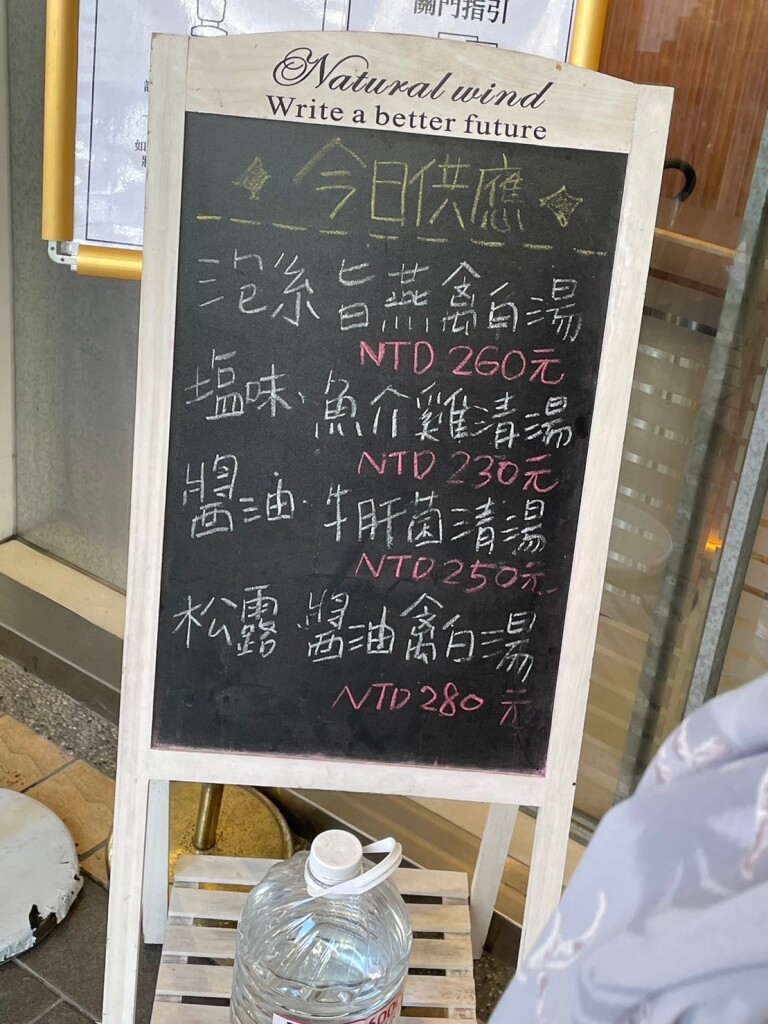 關門指引
如
Natural wind
Write a better future
今日供應
泡系 旨燕禽白湯
NTD 260元
塩味 魚介雞清湯
NTD 230元
醬油 牛肝菌清湯
NTD 250元
松露 醬油禽白湯
NTD 280元
600